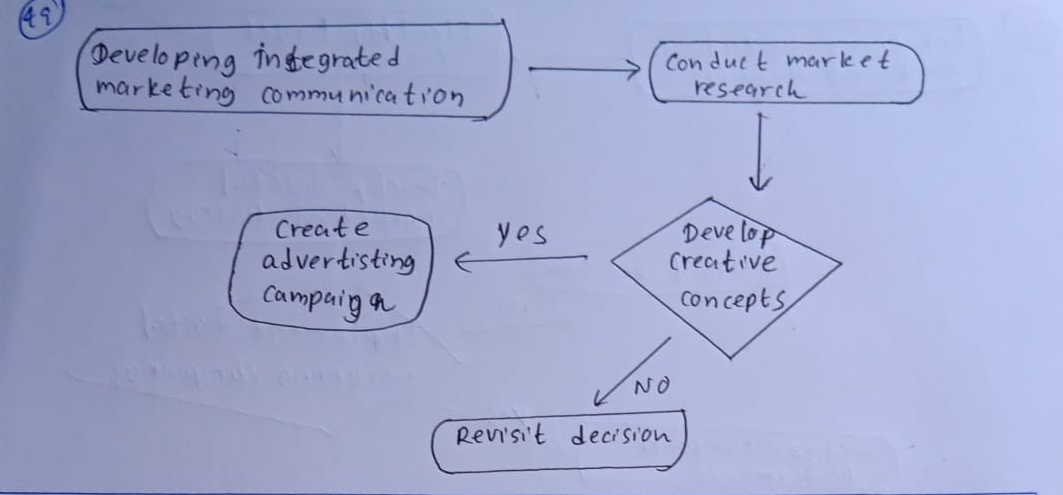 49
Developing integrated
marketing communication
Conduct market
research
Develop
creative
concepts
Yes
Create
advertisting
campaign
NO
Revisit decision